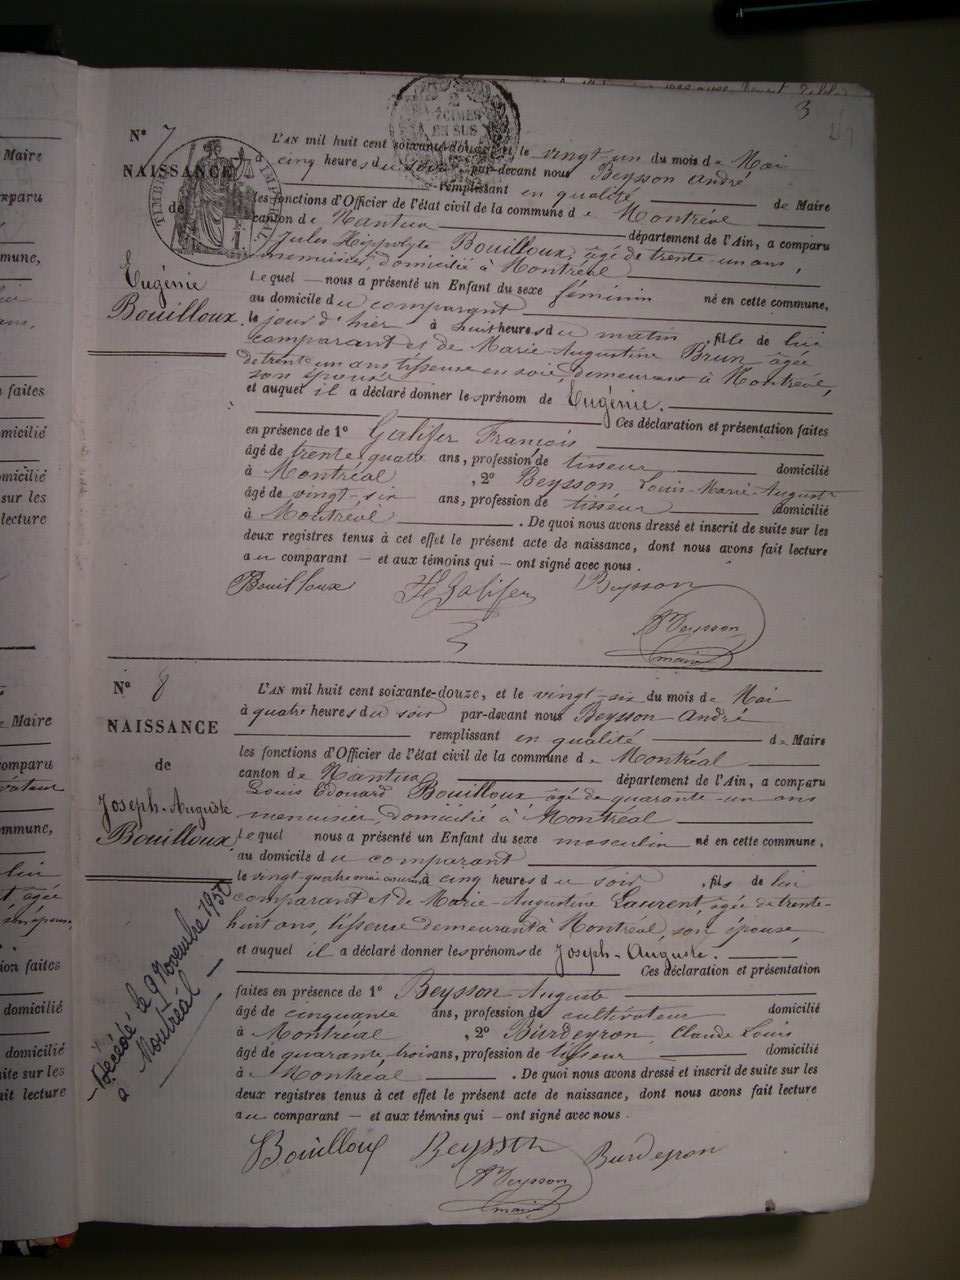 3
2
CIMES
EN SUS
TIMBRE IMPÉRIAL
1
N° 7
NAISSANCE
de
Eugénie
Bouilloux.
L'AN mil huit cent soixante-douze et le vingt un du mois de Mai
à cinq heures du soir par-devant nous Beysson André
remplissant en qualité de Maire
les fonctions d'Officier de l'état civil de la commune de Montréal
canton de Nantua département de l'Ain, a comparu
Jules Hippolyte Bouilloux, âgé de trente-un ans,
menuisier, domicilié à Montréal
Lequel nous a présenté un Enfant du sexe féminin né en cette commune,
au domicile du comparant
le jour d'hier à huit heures du matin, fille de lui
comparant et de Marie-Augustine Brun âgée
de trente un ans tisseuse en soie, demeurant à Montréal,
son épouse
et auquel il a déclaré donner les prénom de Eugénie.
Ces déclaration et présentation faites
en présence de 1° Galifer François
âgé de trente quatre ans, profession de tisseur domicilié
à Montréal, 2° Beysson Louis-Marie-Auguste
âgé de vingt-six ans, profession de tisseur domicilié
à Montréal. De quoi nous avons dressé et inscrit de suite sur les
deux registres tenus à cet effet le présent acte de naissance, dont nous avons fait lecture
au comparant — et aux témoins qui — ont signé avec nous.
Bouilloux Galifer Beysson
Beysson
maire
N° 8
NAISSANCE
de
Joseph-Auguste
Bouilloux.
Décédé le 9 Novembre 1950
à Montréal
L'AN mil huit cent soixante-douze, et le vingt-six du mois de Mai
à quatre heures du soir par-devant nous Beysson André
remplissant en qualité de Maire
les fonctions d'Officier de l'état civil de la commune de Montréal
canton de Nantua département de l'Ain, a comparu
Louis Edouard Bouilloux âgé de quarante-un ans
menuisier, domicilié à Montréal
Lequel nous a présenté un Enfant du sexe masculin né en cette commune,
au domicile du comparant
le vingt-quatre mai courant à cinq heures du soir, fils de lui
comparant et de Marie-Augustine Laurent, âgée de trente-
huit ans, tisseuse demeurant à Montréal, son épouse,
et auquel il a déclaré donner les prénoms de Joseph-Auguste.
Ces déclaration et présentation
faites en présence de 1° Beysson Auguste
âgé de cinquante ans, profession de cultivateur domicilié
à Montréal, 2° Burdeyron, Claude Louis
âgé de quarante trois ans, profession de tisseur domicilié
à Montréal. De quoi nous avons dressé et inscrit de suite sur les
deux registres tenus à cet effet le présent acte de naissance, dont nous avons fait lecture
au comparant — et aux témoins qui — ont signé avec nous.
Bouilloux Beysson Burdeyron
Beysson
maire